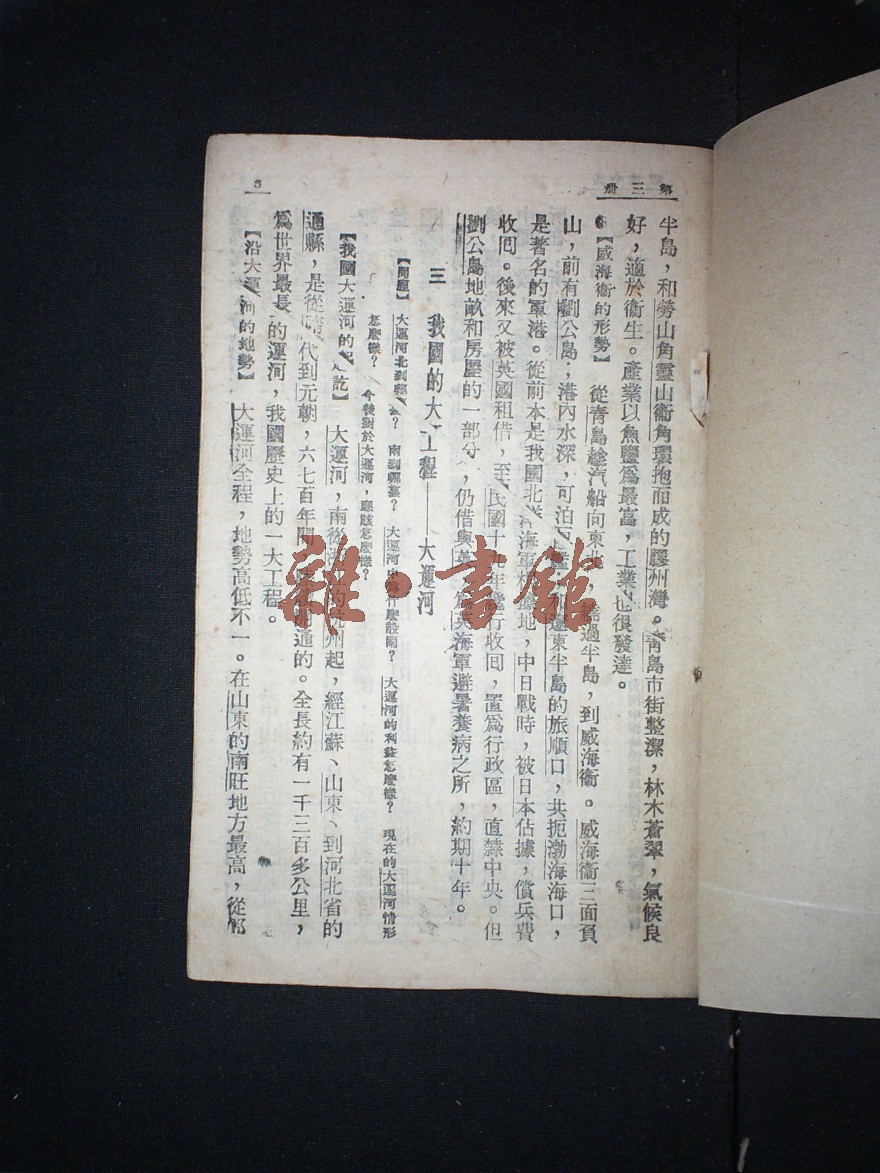 第三册
5
半島，和勞山角靈山衞角環抱而成的膠州灣。青島市街整潔，林木蒼翠，氣候良
好，適於衞生。產業以魚鹽爲最富，工業也很發達。
【威海衞的形勢】 從青島趁汽船向東北，繞過半島，到威海衞。威海衞三面負
山，前有劉公島；港內水深，可泊 東半島的旅順口，共扼渤海海口，
是著名的軍港。從前本是我國北洋海軍根據地，中日戰時，被日本佔據，償兵費
收囘。後來又被英國租借，至民國十九年 行收囘，置爲行政區，直隸中央。但
劉公島地畝和房屋的一部分，仍借與英 爲英海軍避暑養病之所，約期十年。
三 我國的大工程——大運河
【問題】 大運河北到哪裏？ 南到哪裏？ 大運河中爲什麼設閘？ 大運河的利益怎麼樣？ 現在的大運河情形
怎麼樣？ 今後對於大運河，應該怎麼樣？
【我國大運河的起訖】 大運河，南從 的杭州起，經江蘇、山東、到河北省的
通縣，是從隋代到元朝，六七百年間 通的。全長約有一千三百多公里，
爲世界最長的運河，我國歷史上的一大工程。
【沿大運河的地勢】 大運河全程，地勢高低不一。在山東的南旺地方最高，從
雜·書館